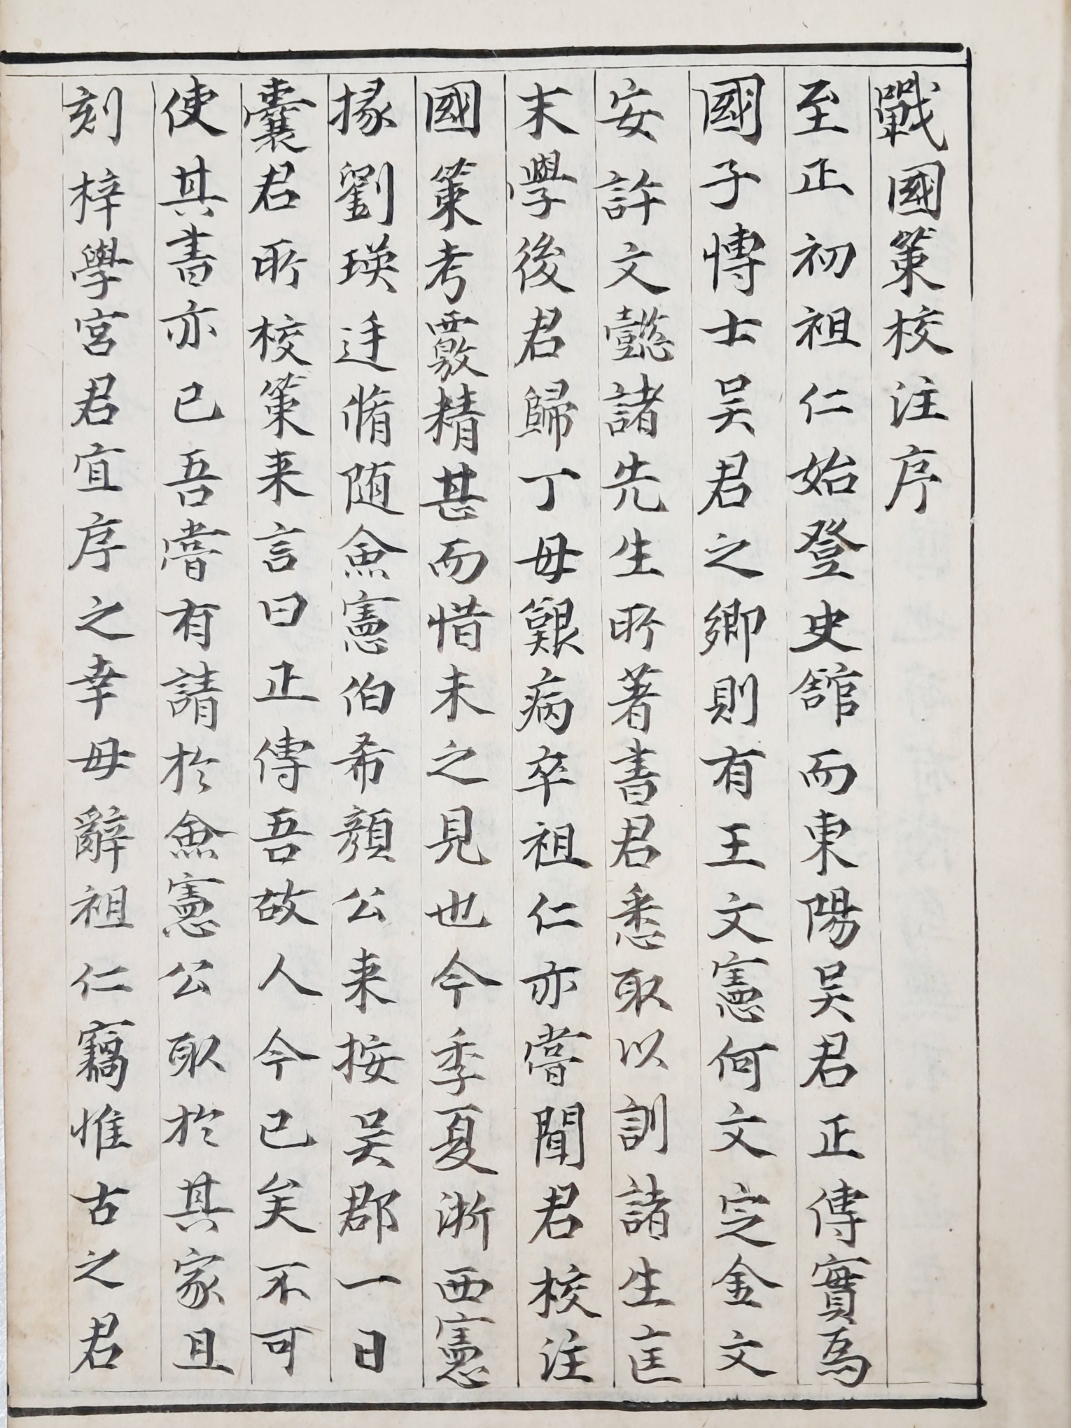 戰國策校注序
至正初祖仁始登史舘而東陽吴君正傳實為
國子博士吴君之鄉則有王文憲何文定金文
安許文懿諸先生所著書君悉取以訓諸生匡
末學後君歸丁母艱病卒祖仁亦嘗聞君校注
國策考覈精甚而惜未之見也今季夏浙西憲
掾劉瑛廷脩随僉憲伯希顔公来按吴郡一日
囊君所校策来言曰正傳吾故人今已矣不可
使其書亦已吾嘗有請於僉憲公取於其家且
刻梓學宮君宜序之幸毋辭祖仁竊惟古之君